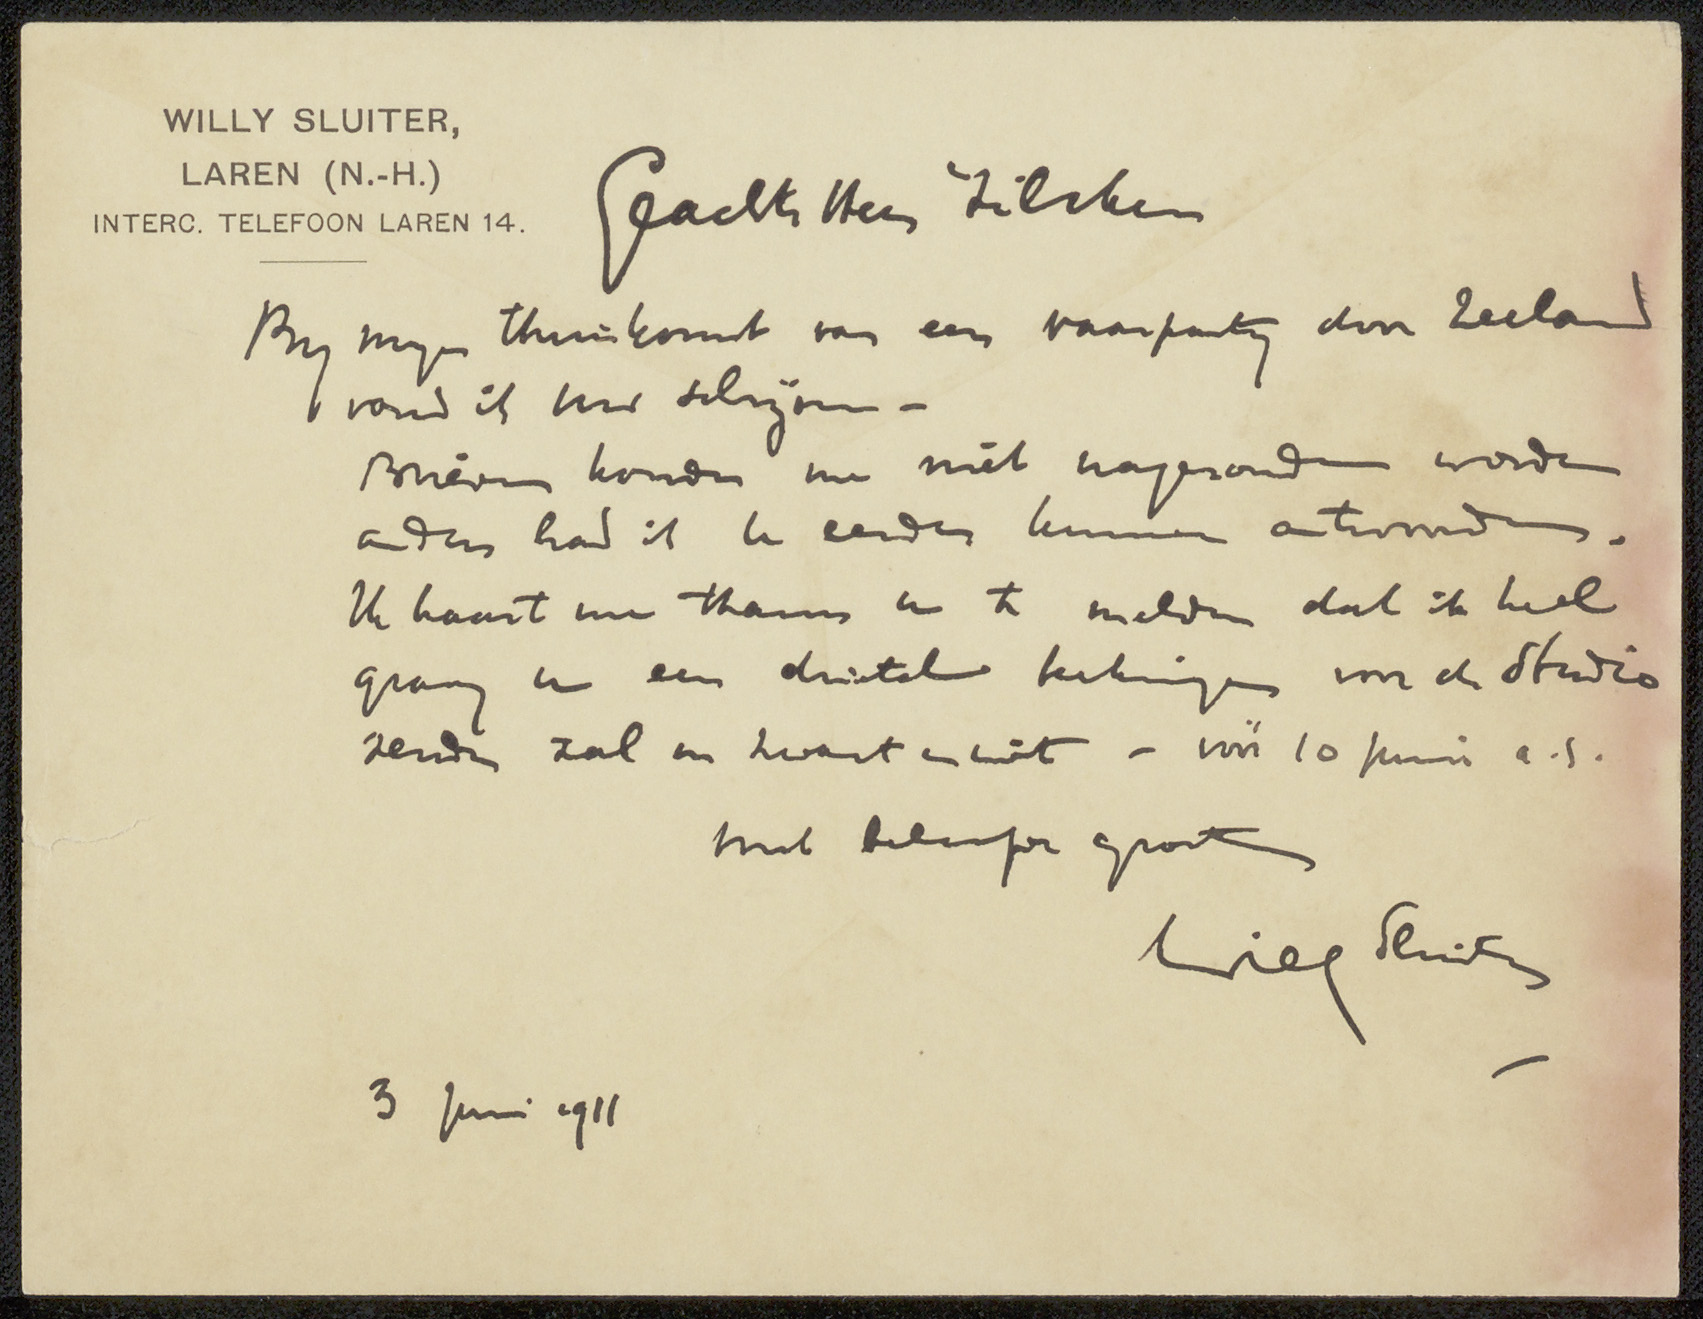 WILLY SLUITER,
LAREN (N.-H.)
INTERC. TELEFOON LAREN 14.
Geachte Heer Zilcken
By myn thuiskomst van een vaarparty door Zeeland
vond ik uw schrijven –
Brieven konden me niet nagezonden worden
anders had ik u eerder kunnen antwoorden.
Ik haast me thans u te melden dat ik heel
graag u een drietal teekeningen voor de Studio
zenden zal in zwart en wit – vóór 10 Juni a.s.
met beleefde groeten
Willy Sluiter
3 Juni 1911